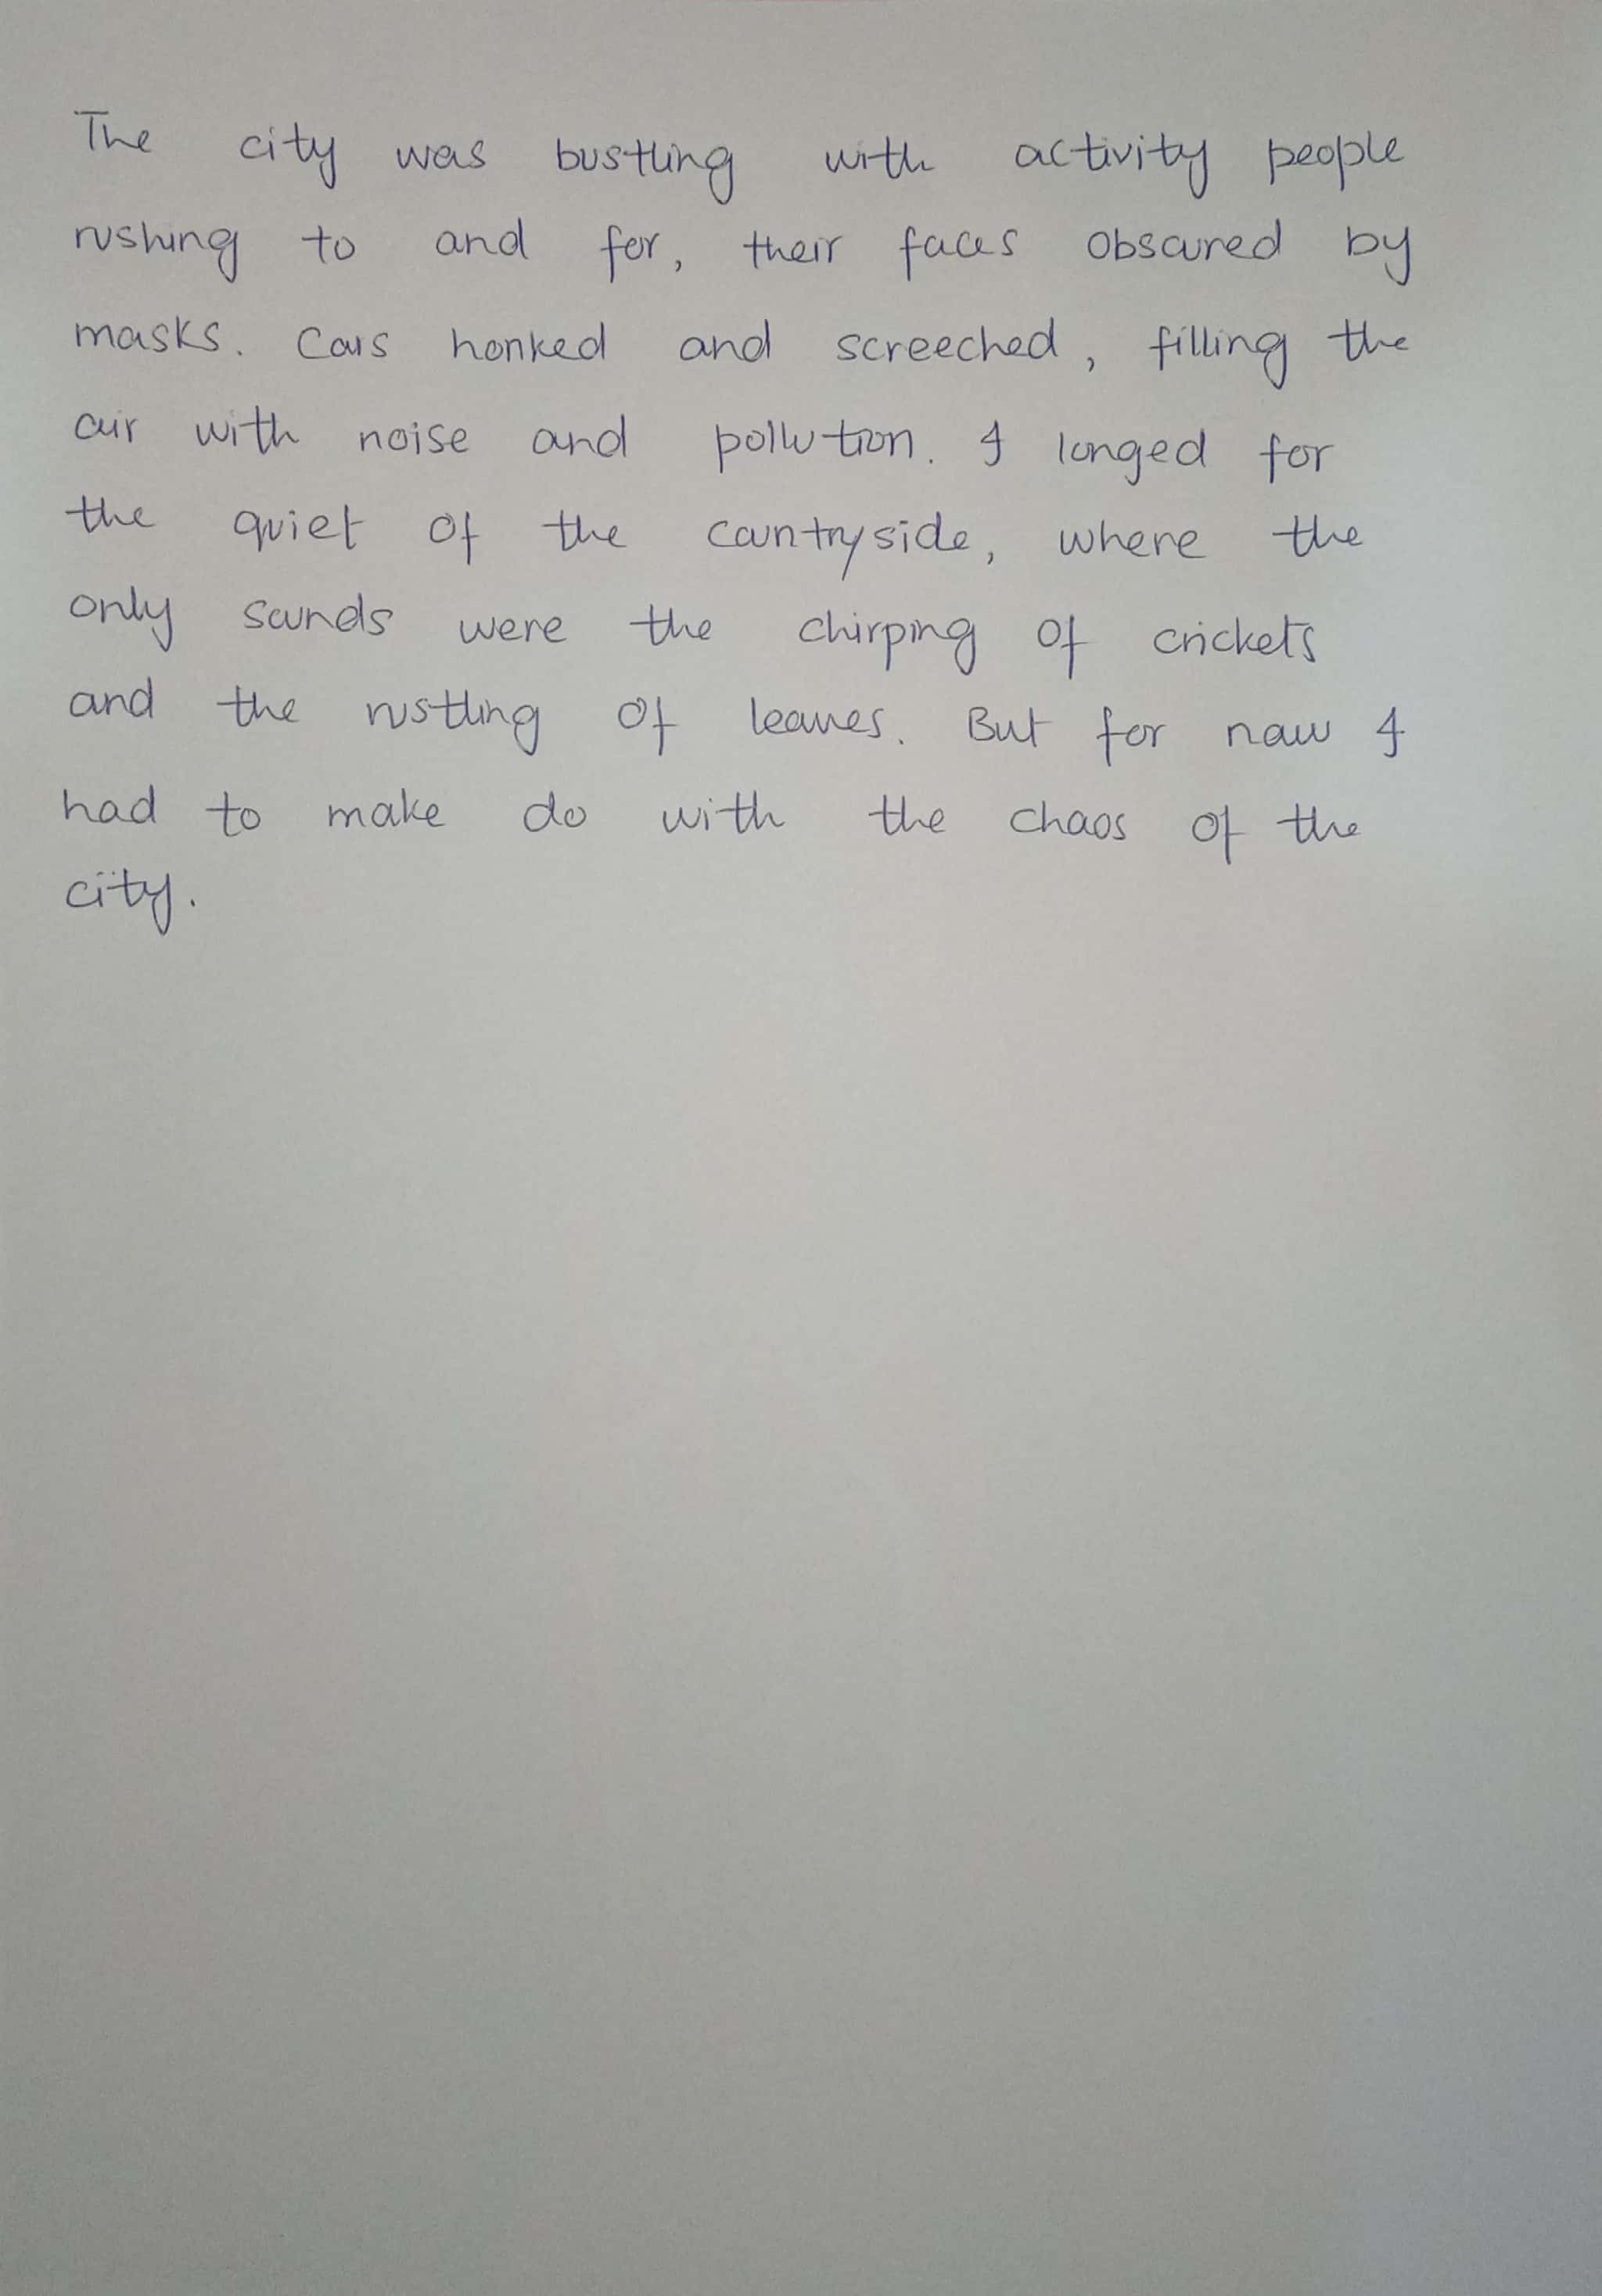 The city was bustling with activity people
rushing to and for, their faces obscured by
masks. Cars honked and screeched, filling the
air with noise and pollution. I longed for
the quiet of the countryside, where the
only sounds were the chirping of crickets
and the rustling of leaves. But for now I
had to make do with the chaos of the
city.